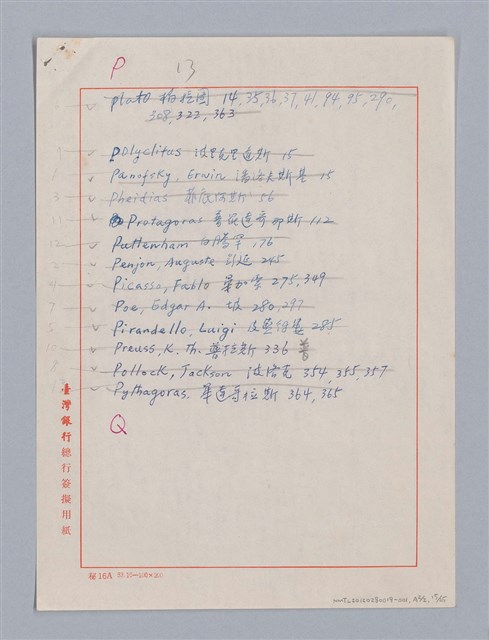 P 13
plato 柏拉圖 14, 35, 36, 37, 41, 94, 95, 290,
308, 322, 363
Polyclitus 波里克里達斯 15
Panofsky, Erwin 潘諾夫斯基 15
Pheidias 56
Protagoras 普羅達哥那斯 112
Puttenham 白騰罕 176
Penjon, Auguste 245
Picasso, Pablo 畢加索 275, 349
Poe, Edgar A. 坡 280, 297
Pirandello, Luigi 皮蘭德婁 285
Preuss, K. Th. 普拉斯 336 普
Pollock, Jackson 波洛克 354, 355, 357
Pythagoras, 畢達哥拉斯 364, 365
Q
臺灣銀行總行簽擬用紙
秘16A